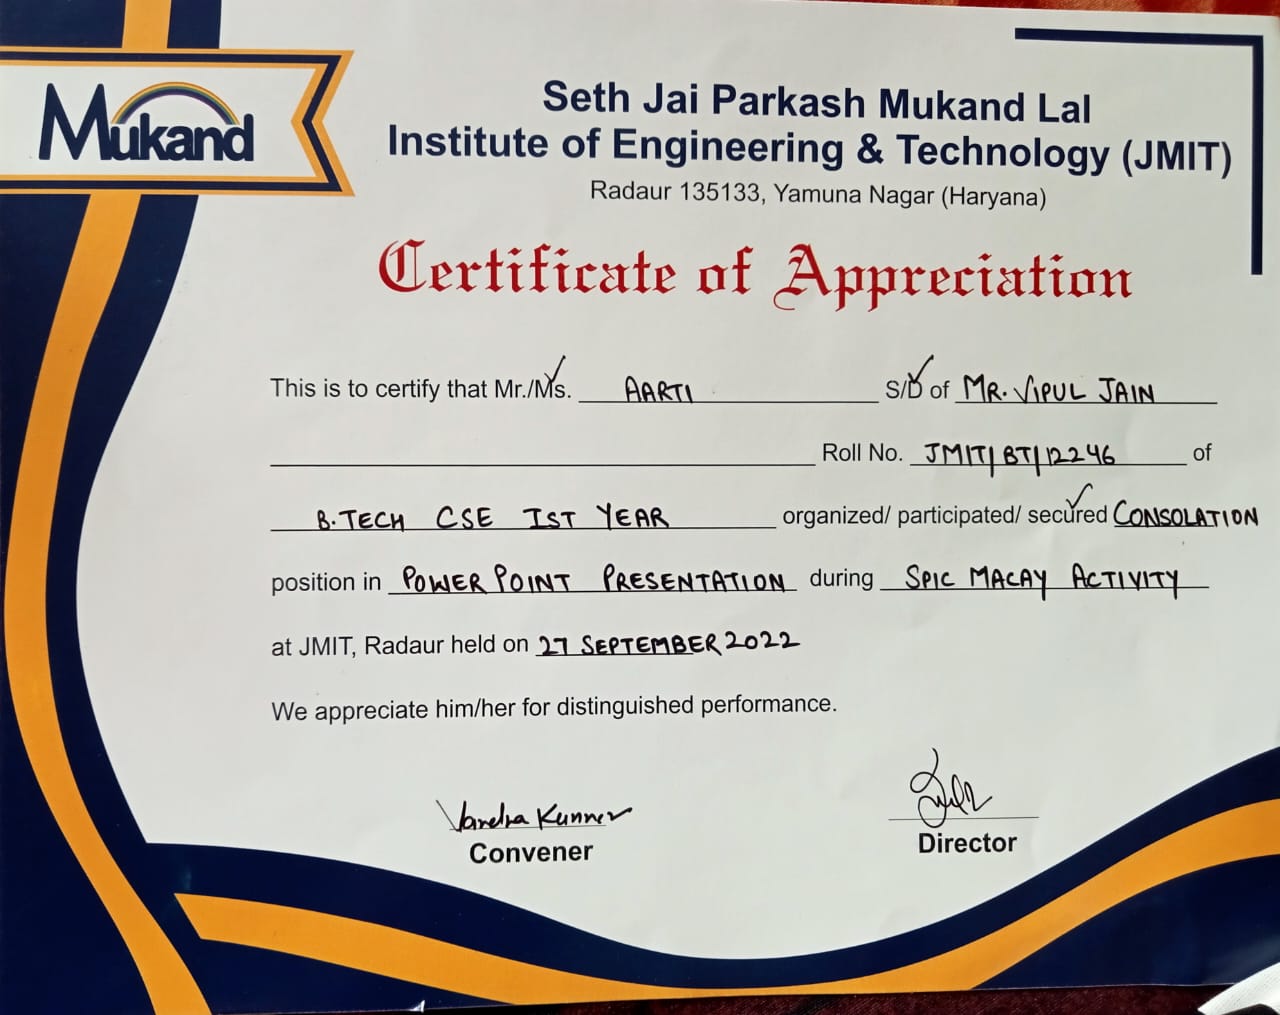 Mukand
Seth Jai Parkash Mukand Lal
Institute of Engineering & Technology (JMIT)
Radaur 135133, Yamuna Nagar (Haryana)
Certificate of Appreciation
This is to certify that Mr./Ms. AARTI S/D of MR. VIPUL JAIN
Roll No. JMIT/BT/12246 of
B.TECH CSE IST YEAR organized/ participated/ secured CONSOLATION
position in POWER POINT PRESENTATION during SPIC MACAY ACTIVITY
at JMIT, Radaur held on 27 SEPTEMBER 2022
We appreciate him/her for distinguished performance.
Convener
Director